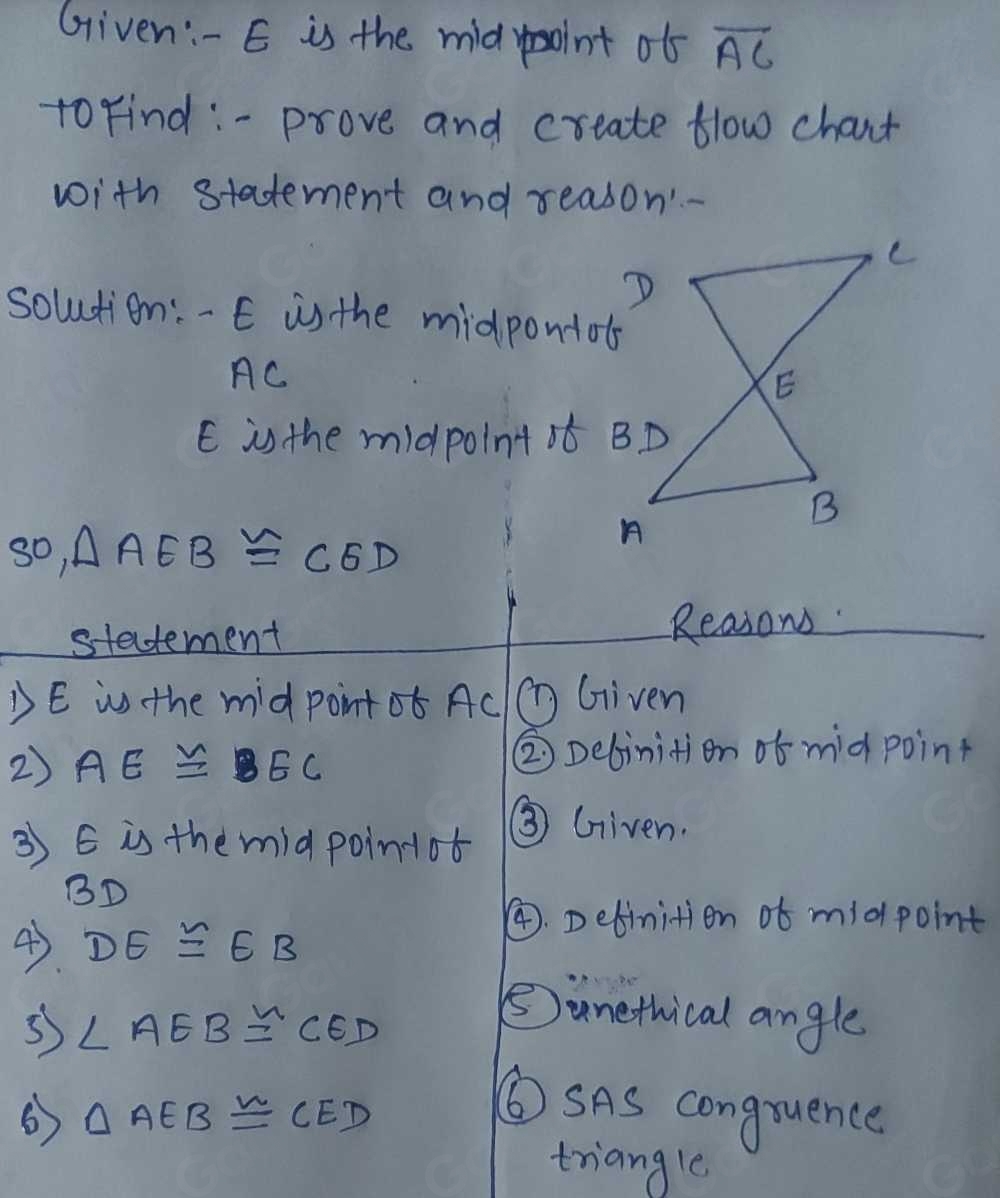 Given:- E is the mid point of AC
To Find :- prove and create flow chart
with statement and reason:-
D
C
Solution:- E is the midpont of
AC
E
E is the midpoint of BD
A
B
So, Δ AEB ≅ CED
Statement
Reasons.
1) E is the mid point of AC
① Given
2) AE ≅ BEC
② Definition of mid point
3) E is the mid point of
BD
③ Given.
4). DE ≅ EB
④. Definition of midpoint
5) ∠ AEB ≅ CED
⑤ unethical angle
6) Δ AEB ≅ CED
⑥ SAS congruence
triangle